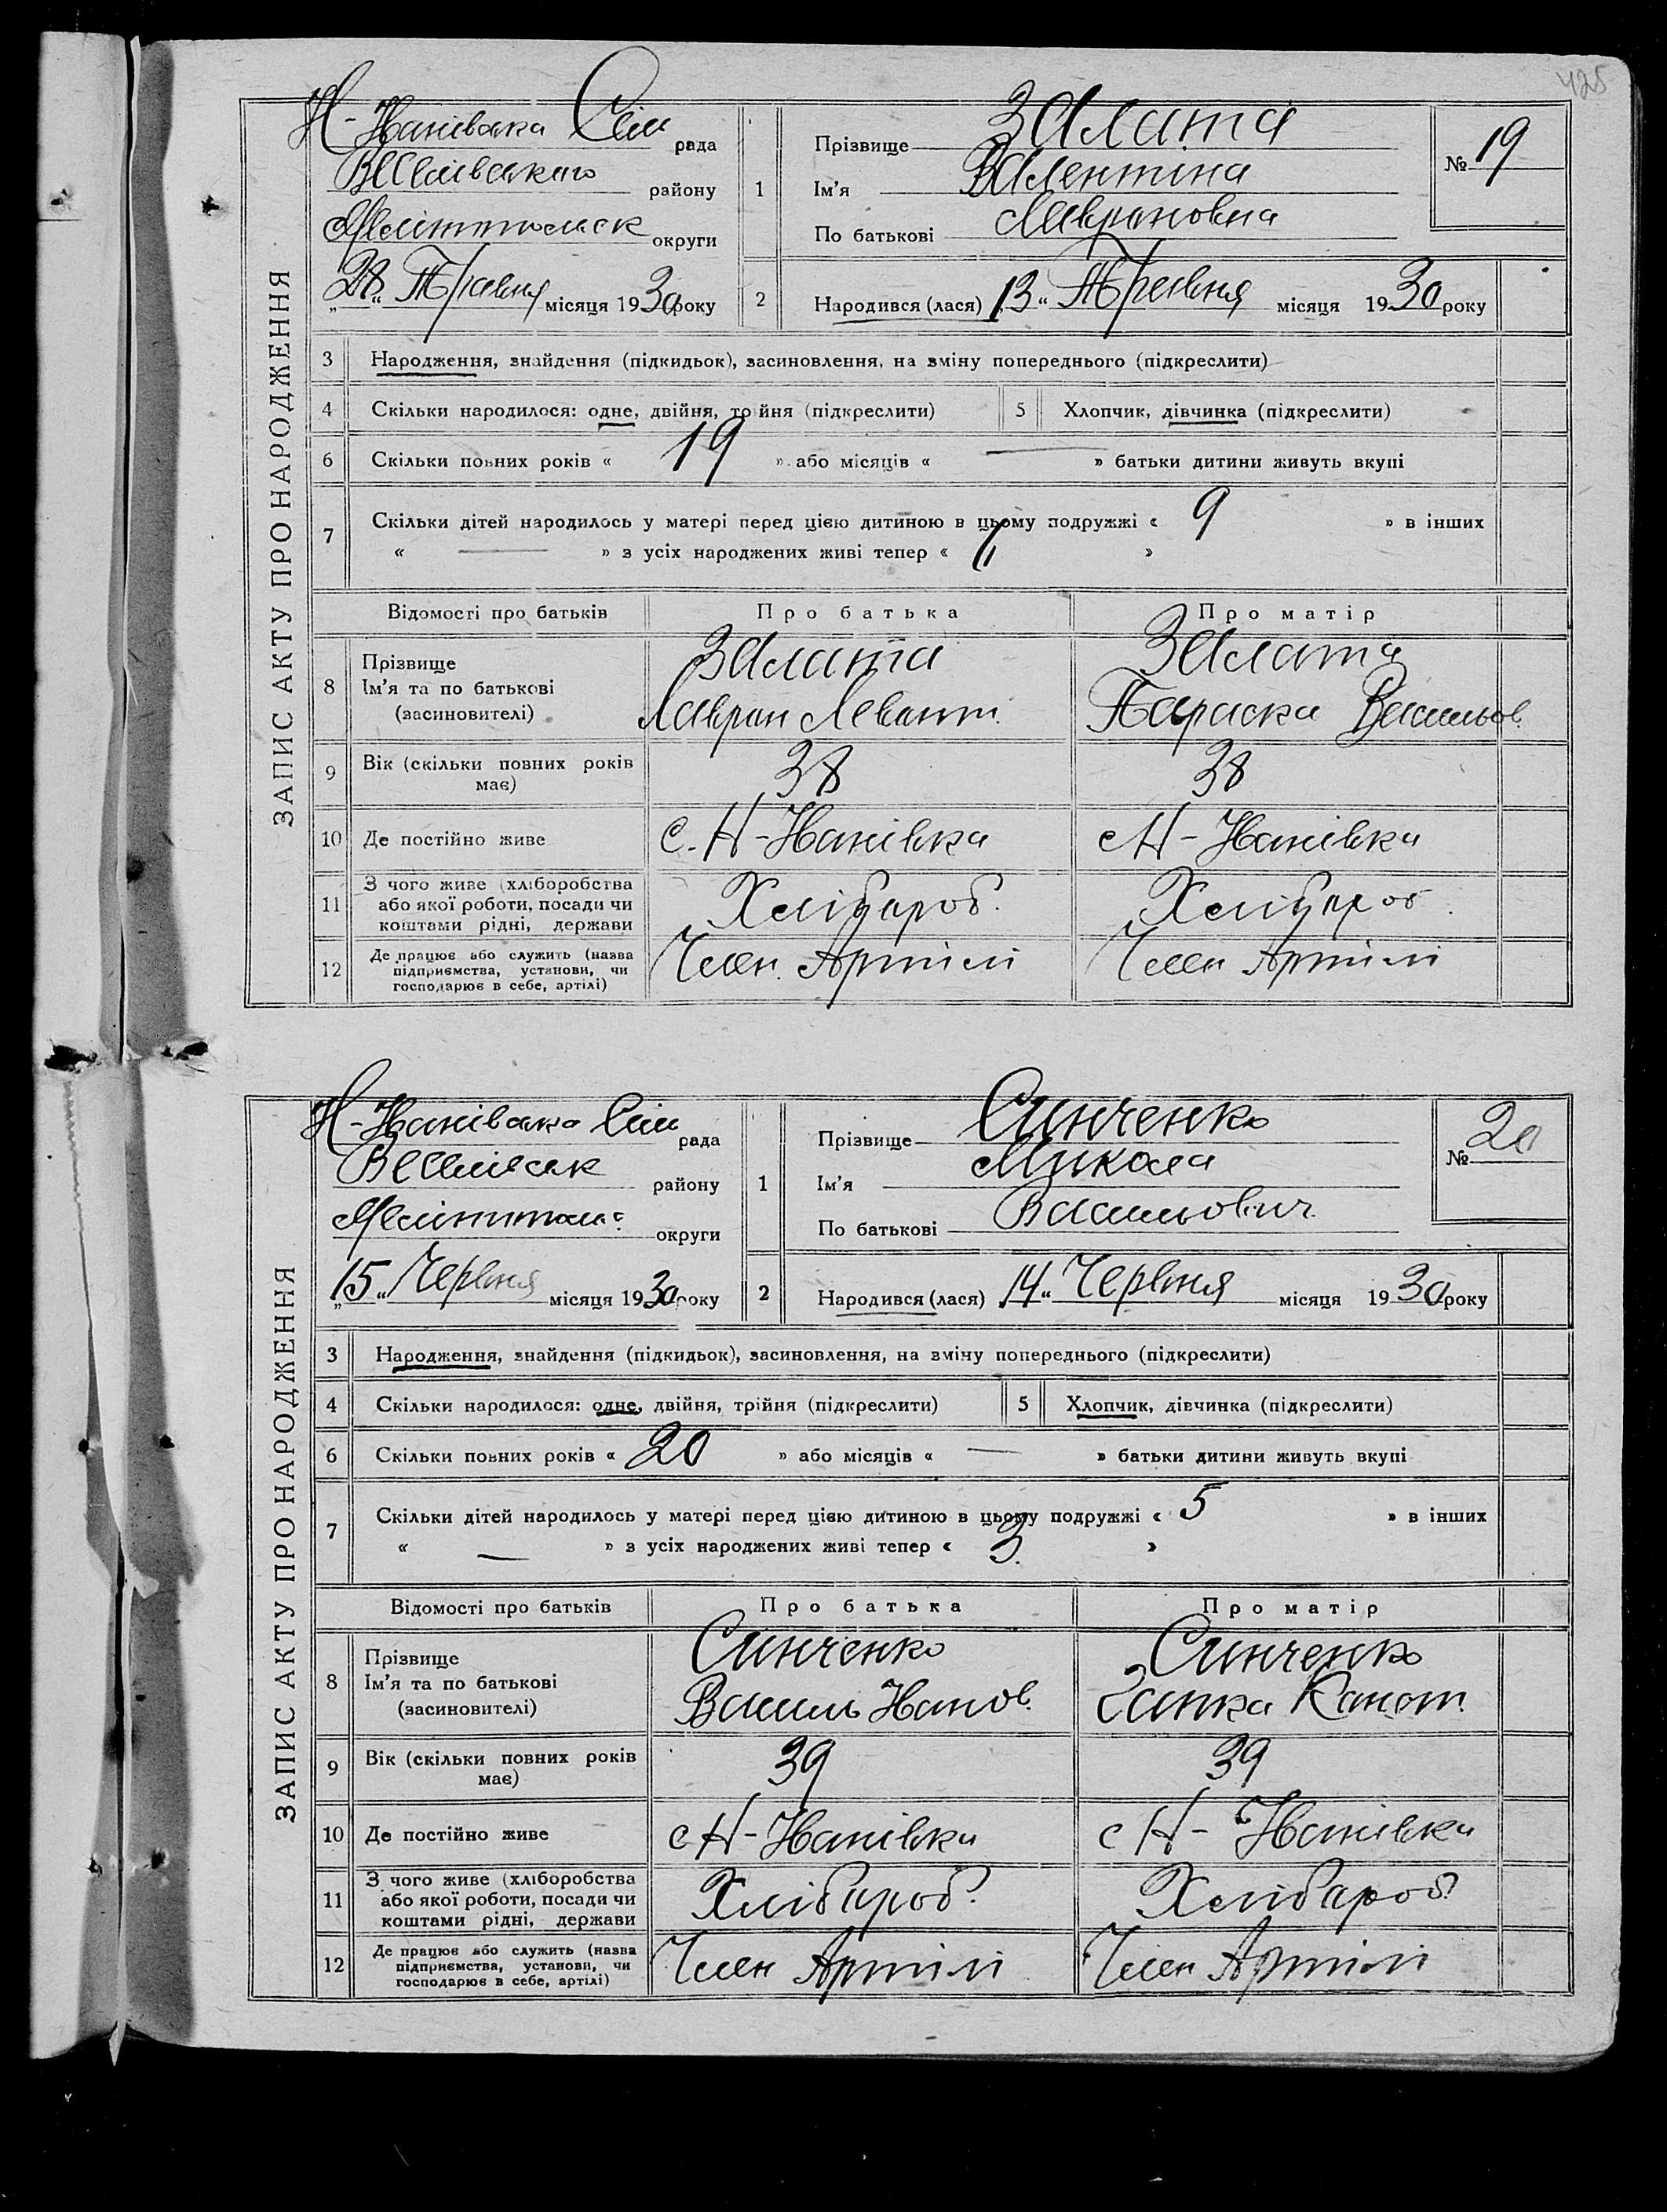 425
ЗАПИС АКТУ ПРО НАРОДЖЕННЯ
Н-Іванівська Сіль рада
району
округи
„28“ Травня місяця 1930 року
1
Прізвище Залата
Ім'я Валентіна
По батькові Лавриновна
№ 19
2
Народився (лася) „13“ Травня місяця 1930 року
3 Народження, знайдення (підкидьок), засиновлення, на зміну попереднього (підкреслити)
4 Скільки народилося: одне, двійня, трійня (підкреслити)
5 Хлопчик, дівчинка (підкреслити)
6 Скільки повних років « 19 » або місяців « — » батьки дитини живуть вкупі
7 Скільки дітей народилось у матері перед цією дитиною в цьому подружжі « 9 » в інших
« — » з усіх народжених живі тепер « »
Відомості про батьків Про батька Про матір
8 Прізвище Залата Залата
Ім'я та по батькові Лаврин Параска Васильов.
(засиновителі)
9 Вік (скільки повних років має) 38 38
10 Де постійно живе с. Н-Іванівка с Н-Іванівка
11 З чого живе (хліборобства
або якої роботи, посади чи
коштами рідні, держави Хлібароб. Хлібароб.
12 Де працює або служить (назва
підприємства, установи, чи
господарює в себе, артілі) Член Артілі Член Артілі
ЗАПИС АКТУ ПРО НАРОДЖЕННЯ
Н-Іванівська Сіль рада
району
округи
„15“ Червня місяця 1930 року
1
Прізвище Синченко
Ім'я Микола
По батькові Васильович
№ 20
2
Народився (лася) „14“ Червня місяця 1930 року
3 Народження, знайдення (підкидьок), засиновлення, на зміну попереднього (підкреслити)
4 Скільки народилося: одне, двійня, трійня (підкреслити)
5 Хлопчик, дівчинка (підкреслити)
6 Скільки повних років « 20 » або місяців « — » батьки дитини живуть вкупі
7 Скільки дітей народилось у матері перед цією дитиною в цьому подружжі « 5 » в інших
« — » з усіх народжених живі тепер « 3 »
Відомості про батьків Про батька Про матір
8 Прізвище Синченко Синченко
Ім'я та по батькові Василь Іванов.
(засиновителі)
9 Вік (скільки повних років має) 39 39
10 Де постійно живе с Н-Іванівка с Н-Іванівка
11 З чого живе (хліборобства
або якої роботи, посади чи
коштами рідні, держави Хлібароб. Хлібароб.
12 Де працює або служить (назва
підприємства, установи, чи
господарює в себе, артілі) Член Артілі Член Артілі